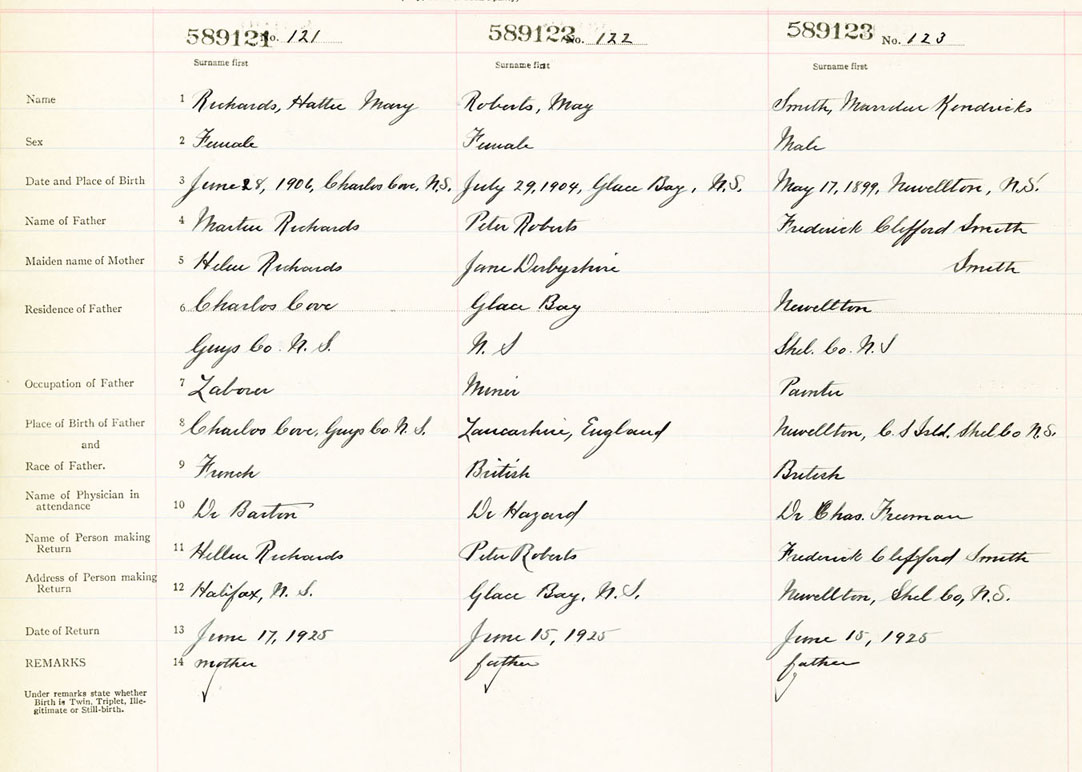 589121 No. 121 589122 No. 122 589123 No. 123
Surname first Surname first Surname first
Name 1 Richards, Hattie Mary Roberts, May Smith, Kendricks
Sex 2 Female Female Male
Date and Place of Birth 3 June 28, 1906, Charlos Cove, N.S. July 29, 1904, Glace Bay, N.S. May 17, 1899, Newellton, N.S.
Name of Father 4 Martin Richards Peter Roberts Frederick Clifford Smith
Maiden name of Mother 5 Helen Richards Jane Derbyshire Smith
Residence of Father 6 Charlos Cove Glace Bay Newellton
Guys Co. N.S. N.S Shel. Co. N.S
Occupation of Father 7 Laborer Miner Painter
Place of Birth of Father 8 Charlos Cove, Guys Co N.S. Lancashire, England Newellton, C.S Isld. Shel Co N.S.
and
Race of Father. 9 French British British
Name of Physician in
attendance 10 Dr Barton Dr Hazard Dr Chas. Freeman
Name of Person making
Return 11 Hellen Richards Peter Roberts Frederick Clifford Smith
Address of Person making
Return 12 Halifax, N.S. Glace Bay, N.S. Newellton, Shel Co, N.S.
Date of Return 13 June 17, 1925 June 15, 1925 June 15, 1925
REMARKS 14 mother father father
Under remarks state whether
Birth is Twin, Triplet, Ille-
gitimate or Still-birth.